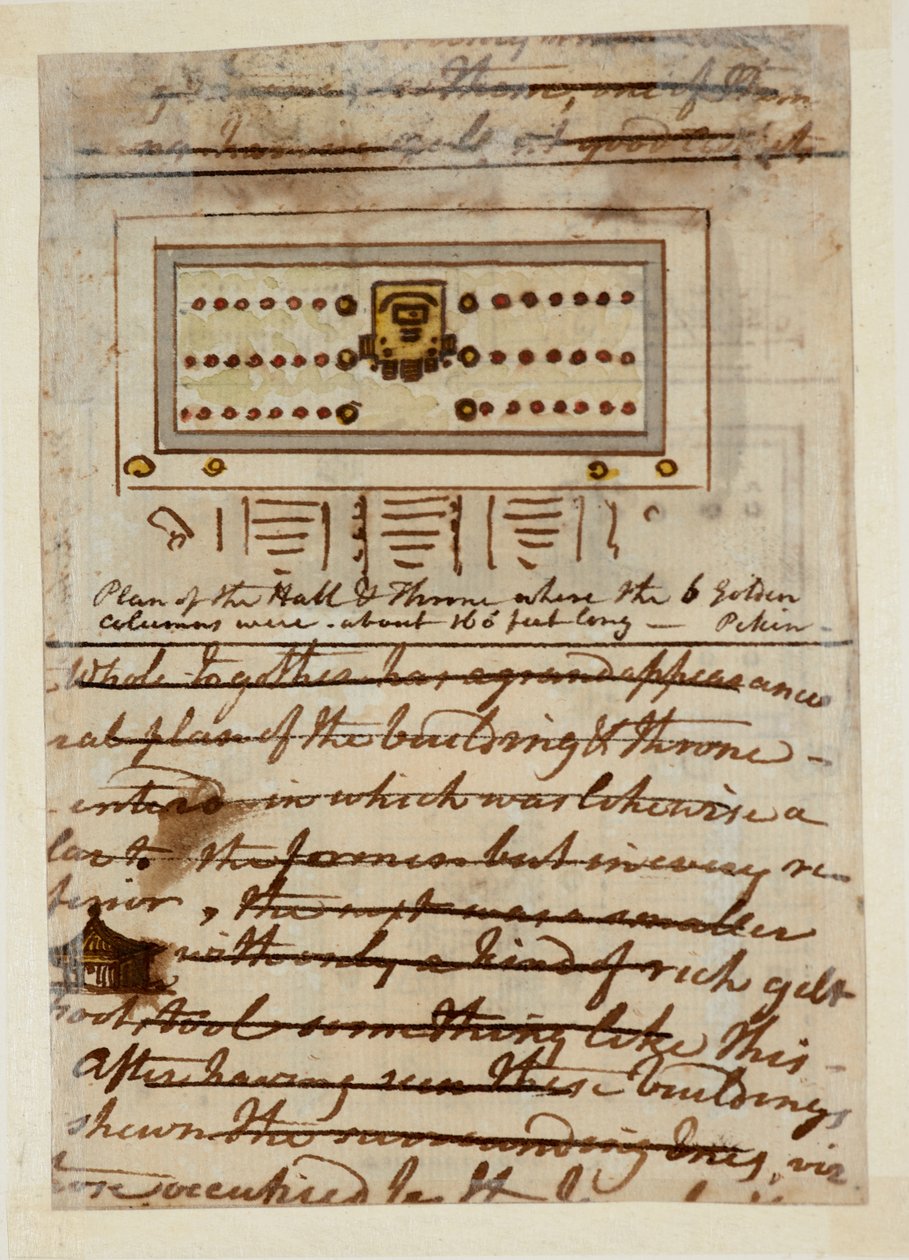 to them, one of them
gilt good
Plan of the Hall & Throne where the 6 Golden
columns were - about 160 feet long — Pekin -
Whole together has a grand appearance
ral plan of the building & throne -
entero in which was likewise a
lar to the former but in every re-
ferior, the next was a smaller
with only a kind of rich gilt
foot stool something like this -
After having seen these buildings
shewn the surrounding ones, viz